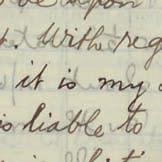 upon
. With reg
it is my
is liable to